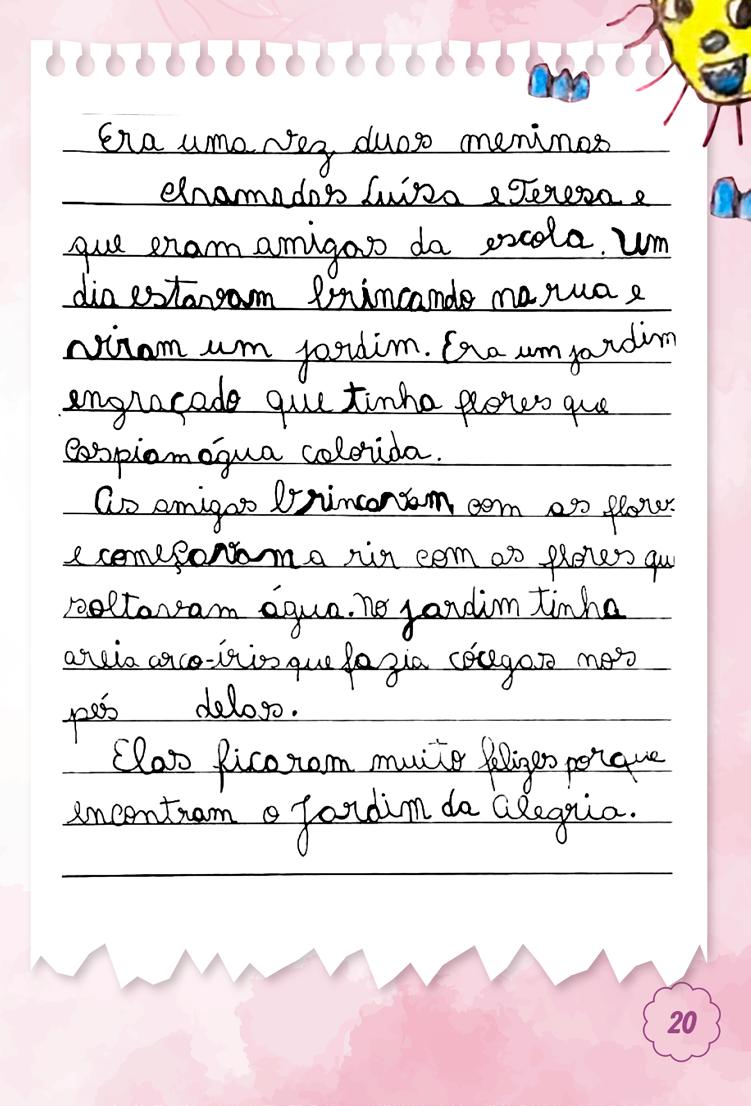 Era uma vez duas meninas
chamadas Luísa e Teresa e
que eram amigas da escola. Um
dia estavam brincando na rua e
viram um jardim. Era um jardim
engraçado que tinha flores que
cospiam água colorida.
As amigas brincavam com as flores
e começavam a rir com as flores qu
soltavam água. No jardim tinha
areia arco-íris que fazia cócegas nos
pés delas.
Elas ficaram muito felizes porque
encontram o Jardim da Alegria.
20